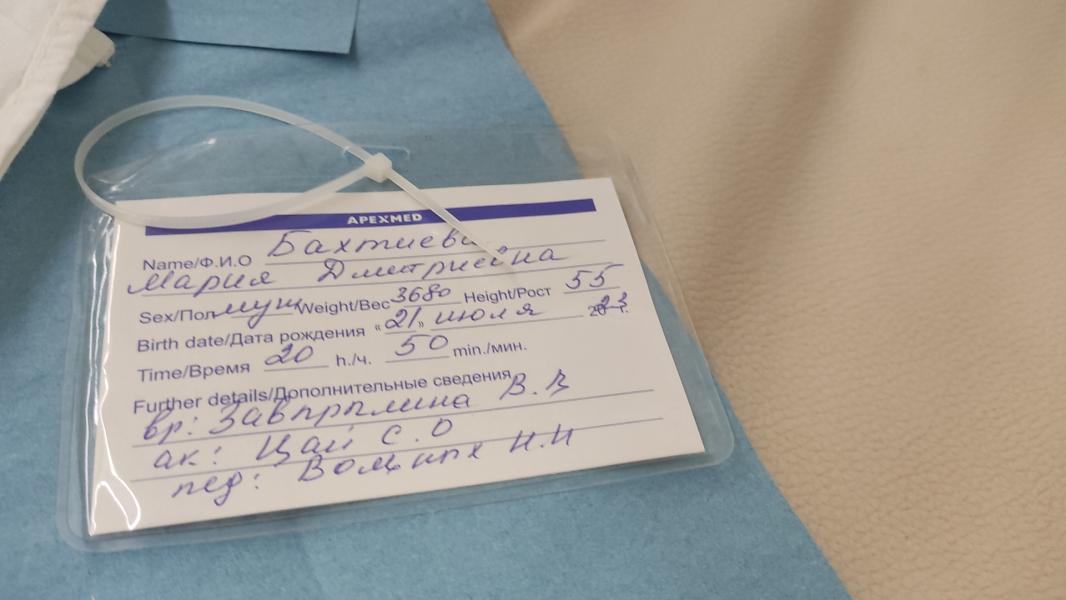 APEXMED
Name/Ф.И.О Бахтиева
Мария Дмитриевна
Sex/Пол муж Weight/Вес 3680 Height/Рост 55
Birth date/Дата рождения «21» июля 2023г.
Time/Время 20 h./ч. 50 min./мин.
Further details/Дополнительные сведения
вр: В.В
ак: Цай С.О
пед: Н.Н